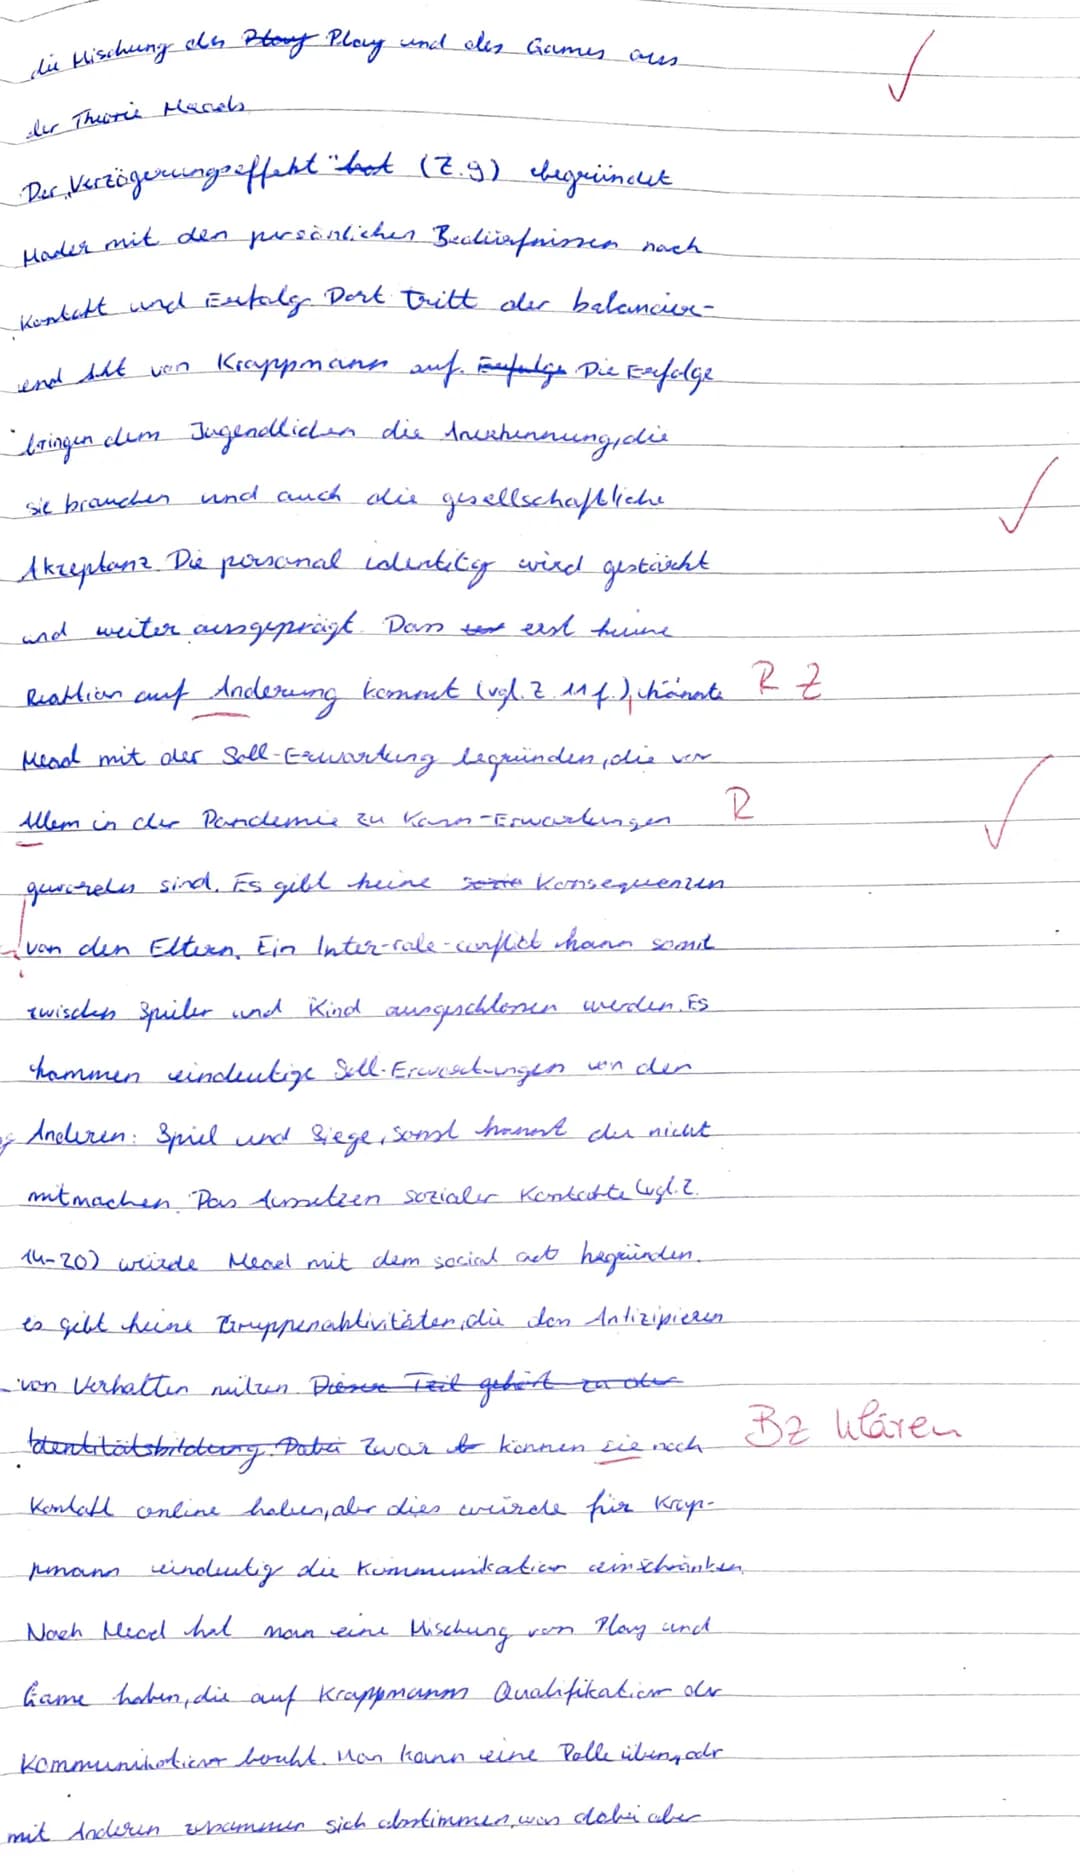 die Mischung des ~~Play~~ Play und des Games aus
der Theorie Meads
Der „Verzögerungseffekt" ~~hat~~ (Z.9) begründet
Mader mit den persönlichen Bedürfnissen nach
Kontakt und Erfolg. Dort tritt der balancier-
end Akt von Krappmann auf. ~~Erfolge~~ Die Erfolge
bringen dem Jugendlichen die Anerkennung, die
sie brauchen und auch die gesellschaftliche
Akzeptanz. Die personal identity wird gestärkt
und weiter ausgeprägt. Dass erst keine
Reaktion auf Änderung kommt (vgl. Z. 11 f.), könnte R Z
Mead mit der Soll-Erwartung begründen, die vor
Allem in der Pandemie zu Kann-Erwartungen R
geworden sind. Es gibt keine ~~sozia~~ Konsequenzen
von den Eltern. Ein Inter-role-conflict kann somit
zwischen Spieler und Kind ausgeschlossen werden. Es
kommen eindeutige Soll-Erwartungen von den
Anderen: Spiel und Siege, sonst kannst du nicht
mitmachen. Das Aussetzen sozialer Kontakte (vgl. Z.
14-20) würde Mead mit dem social act begründen.
es gibt keine Gruppenaktivitäten, die den Antizipieren
von Verhalten nützen. ~~Dieser Teil gehört zu der~~
~~Identitätsbildung. Dabei~~ Zwar können sie noch Bz klären
Kontakt online haben, aber dies würde für Krap-
pmann eindeutig die Kommunikation einschränken.
Nach Mead hat man eine Mischung von Play und
Game haben, die auf Krappmanns Qualifikation der
Kommunikation beruht. Man kann eine Rolle üben, odr
mit Anderen zusammen sich abstimmen, was dabei aber